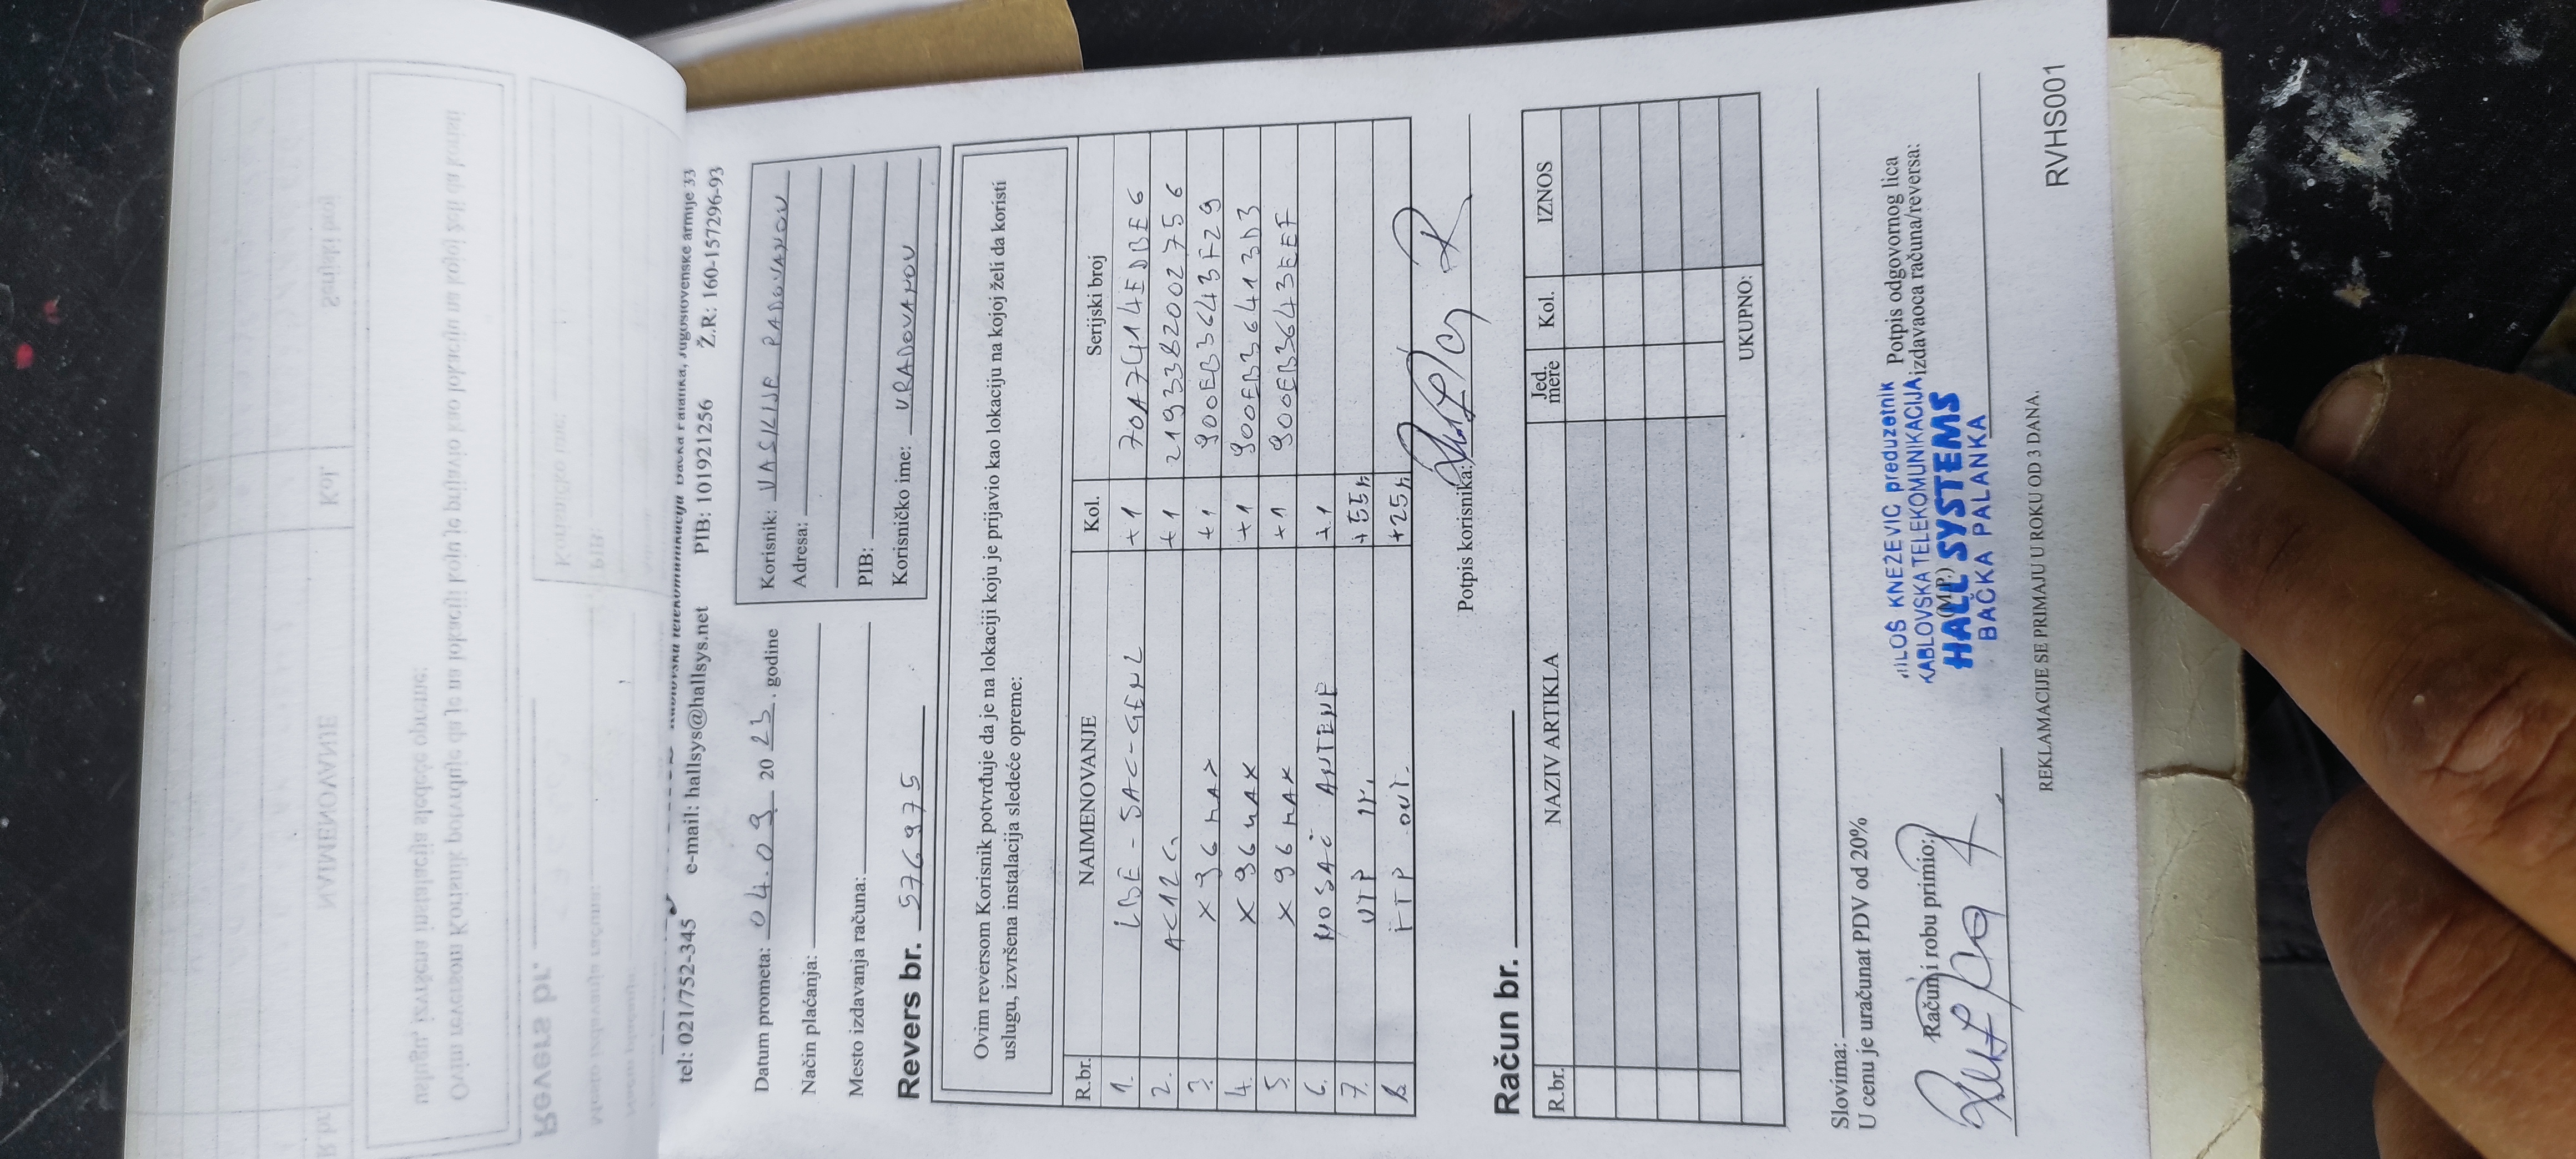 kablovska telekomunikacija Bačka Palanka, Jugoslovenske armije 33
tel: 021/752-345 e-mail: hallsys@hallsys.net PIB: 101921256 Ž.R: 160-157296-93
Datum prometa: 04.09. 2023. godine
Način plaćanja:
Mesto izdavanja računa:
Korisnik: VASILIJE RADOVANOV
Adresa:
PIB:
Korisničko ime: VRADOVANOV
Revers br. 576975
Ovim reversom Korisnik potvrđuje da je na lokaciji koju je prijavio kao lokaciju na kojoj želi da koristi
uslugu, izvršena instalacija sledeće opreme:
R.br. NAIMENOVANJE Kol. Serijski broj
1. LBE-5AC-GEN2 +1 70A7414EDBE6
2. AC12G +1 2193382002756
3. X96 MAX +1 900EB3643F29
4. X96 MAX +1 900EB36413D3
5. X96 MAX +1 900EB3643EEF
6. NOSAČ ANTENE +1
7. UTP IN. +55m
8. FTP OUT. +25m
Potpis korisnika:
Račun br.
R.br. NAZIV ARTIKLA Jed. mere Kol. IZNOS
UKUPNO:
Slovima:
U cenu je uračunat PDV od 20%
Račun i robu primio:
(M.P.)
MILOŠ KNEŽEVIĆ preduzetnik
KABLOVSKA TELEKOMUNIKACIJA
HALL SYSTEMS
BAČKA PALANKA
Potpis odgovornog lica
izdavaoca računa/reversa:
REKLAMACIJE SE PRIMAJU U ROKU OD 3 DANA.
RVHS001